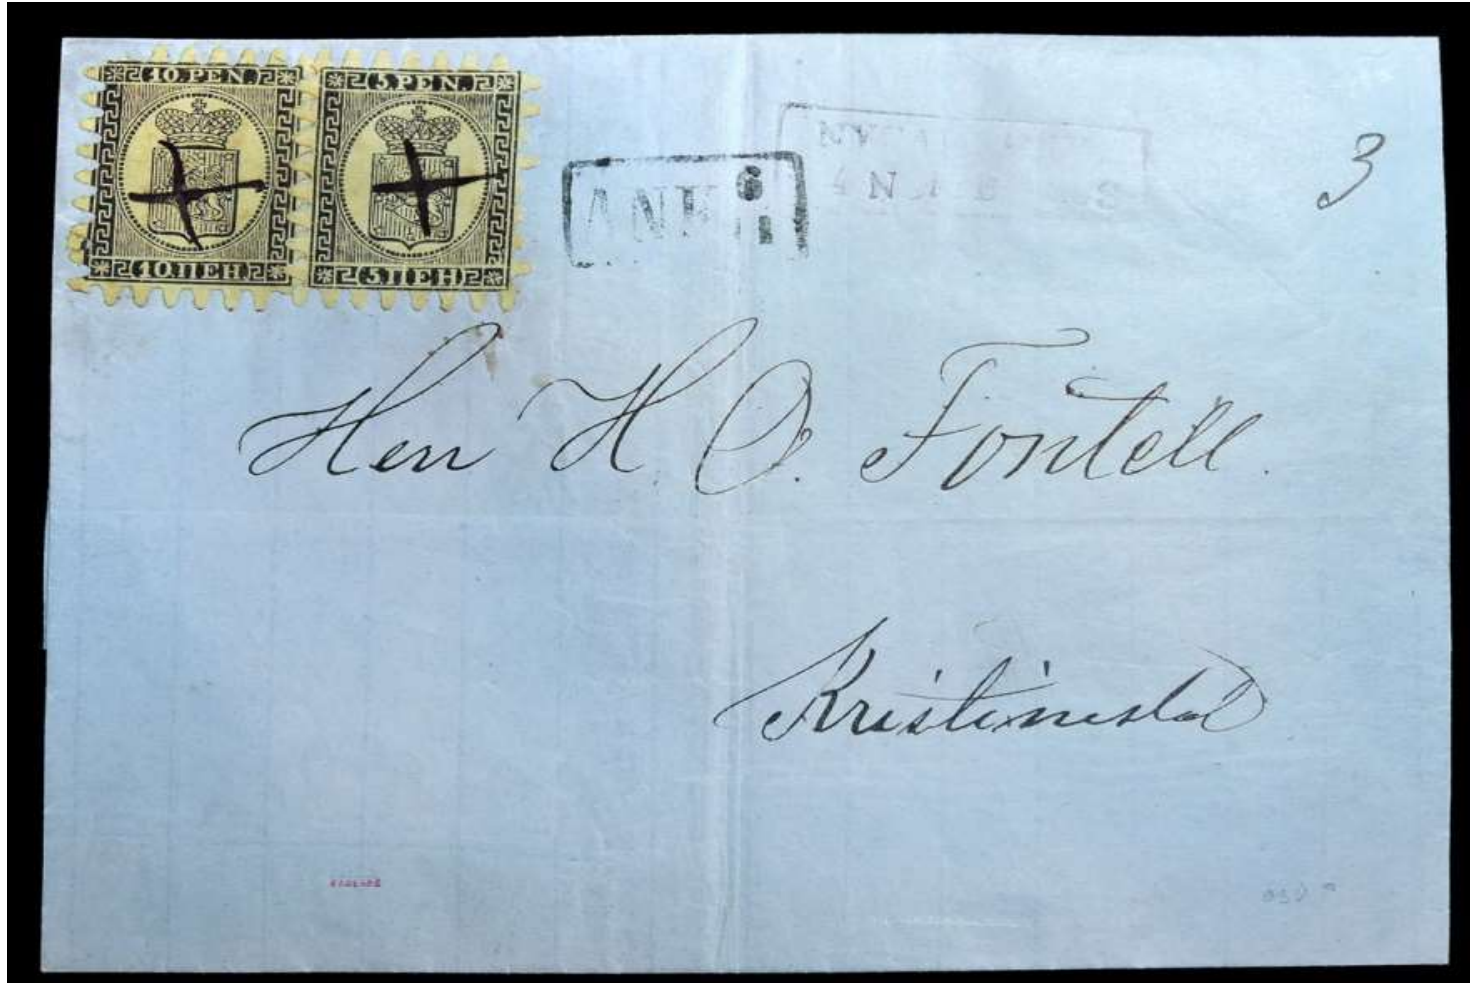 10.PEN.
5.PEN.
10.ПЕН.
5.ПЕН.
ANK 6
3
Herr H O. Fontell.
Kristinestad